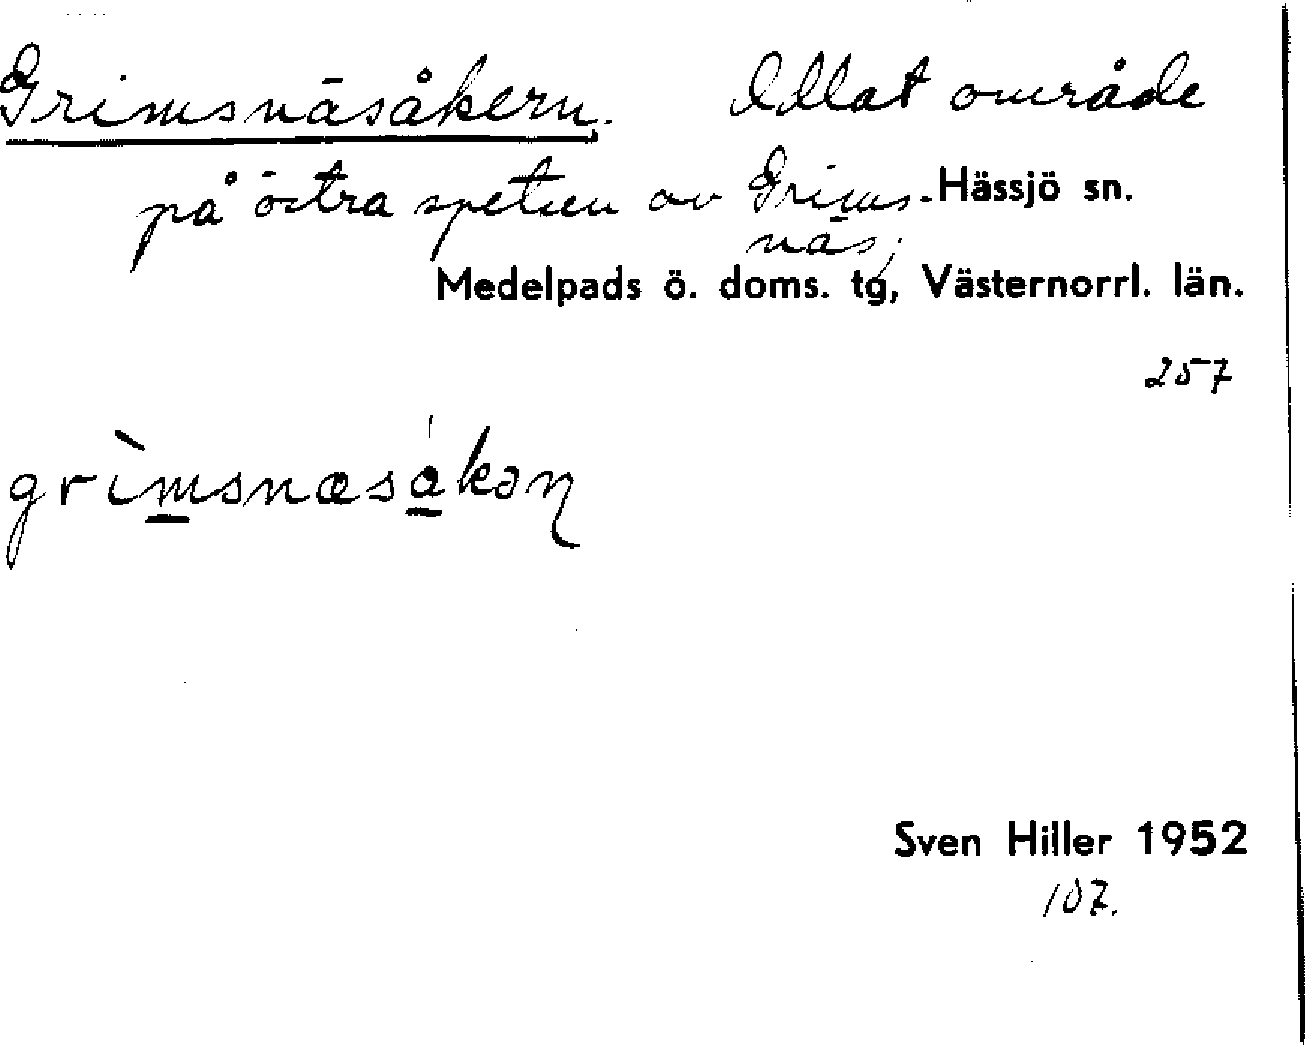 Grimsnäsåkern. Odlat område
på östra spetsen av Grims- Hässjö sn.
näs.
Medelpads ö. doms. tg, Västernorrl. län.
257
grìmsnæsákən
Sven Hiller 1952
107.